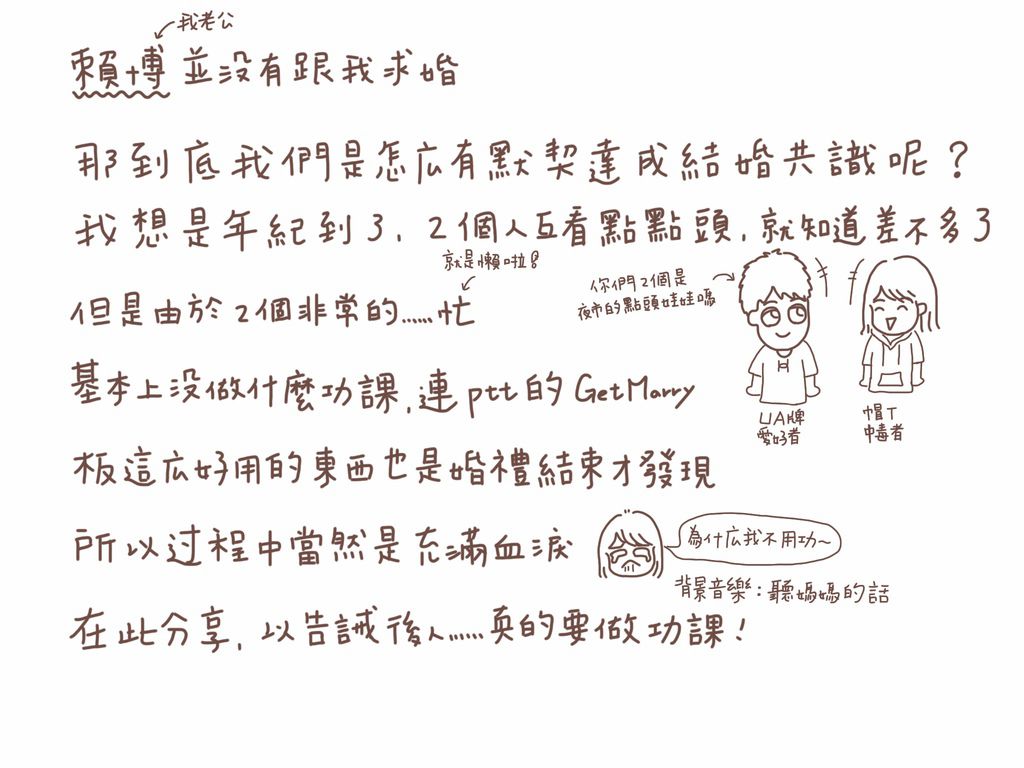 我老公
賴博並沒有跟我求婚
那到底我們是怎広有默契達成結婚共識呢？
我想是年紀到了，2個人互看點點頭，就知道差不多了
就是懶啦！
但是由於2個非常的……忙
你們2個是
夜市的點頭娃娃嗎
基本上没做什麼功課，連ptt的GetMarry
UA牌
愛好者
帽T
中毒者
板這広好用的東西也是婚禮結束才發現
所以过程中當然是充滿血淚
為什広我不用功～
背景音樂：聽媽媽的話
在此分享，以告誡後人……真的要做功課！